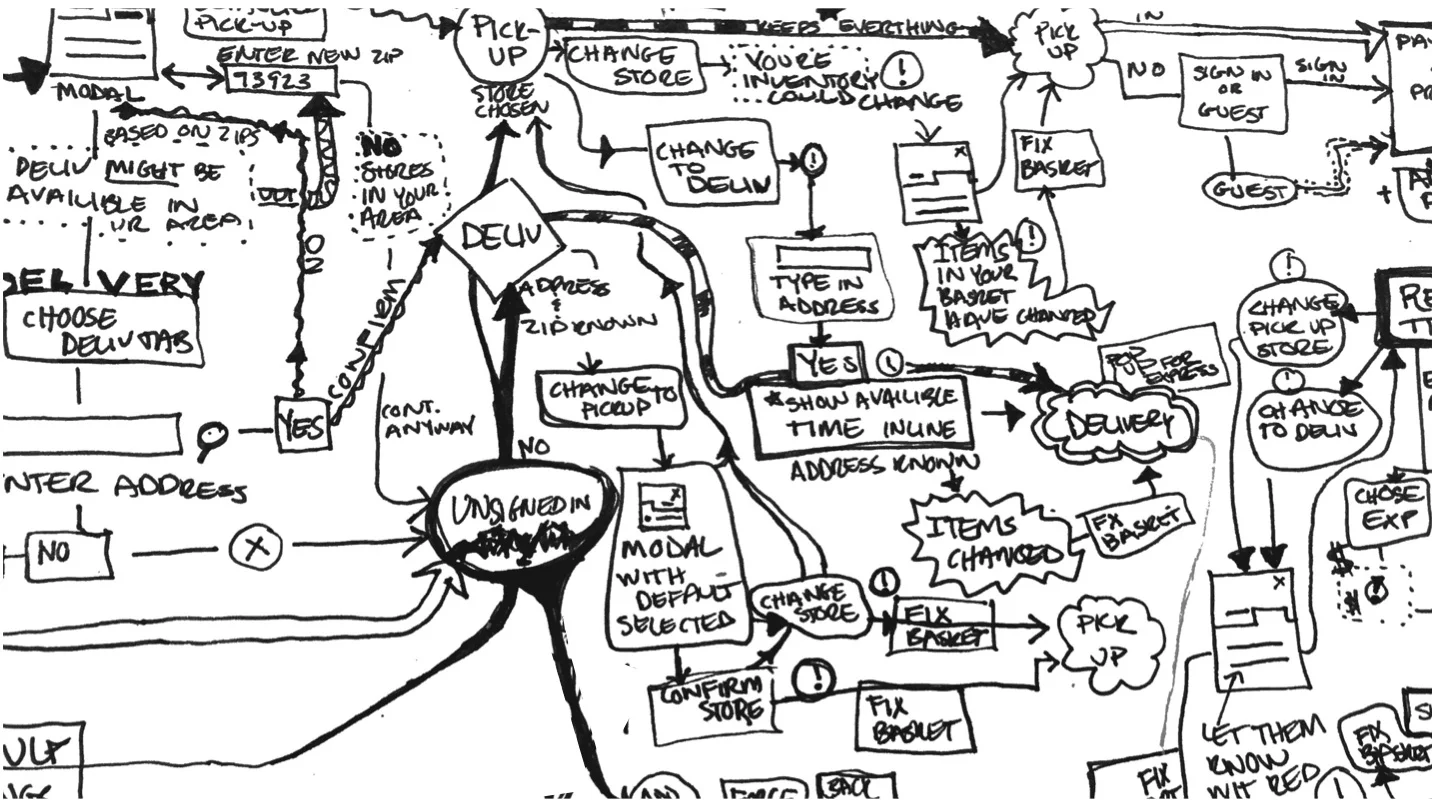 PICK-UP
MODAL
ENTER NEW ZIP
73923
BASED ON ZIPS
DELIV MIGHT BE
AVAILIBLE IN
UR AREA
NO
STORES
IN YOUR
AREA
PICK-
UP
STORE
CHOSEN
CHANGE
STORE
KEEPS EVERYTHING
YOU'RE
INVENTORY
COULD CHANGE
!
PICK
UP
IN
NO
SIGN IN
OR
GUEST
SIGN
IN
GUEST
+
CHANGE
TO
DELIV
!
FIX
BASKET
!
ITEMS
IN YOUR
BASKET
HAVE CHANGED
TYPE IN
ADDRESS
YES
!
*SHOW AVAILIBLE
TIME INLINE
ADDRESS KNOWN
FOR
EXPRESS
DELIVERY
ITEMS
CHANGED
FIX
BASKET
DELIV
ADDRESS
&
ZIP KNOWN
CHANGE TO
PICKUP
NO
CONFIRM
NO
CHOOSE
DELIV TAB
YES
CONT.
ANYWAY
ENTER ADDRESS
NO
X
UNSIGNED IN
MODAL
WITH
DEFAULT
SELECTED
CHANGE
STORE
!
FIX
BASKET
PICK
UP
CONFIRM
STORE
!
FIX
BASKET
!
CHANGE
PICK UP
STORE
!
CHANGE
TO DELIV
CHOSE
EXP
$
$
LET THEM
KNOW
WIT RED
FIX
BASKET
FIX
!
BACK